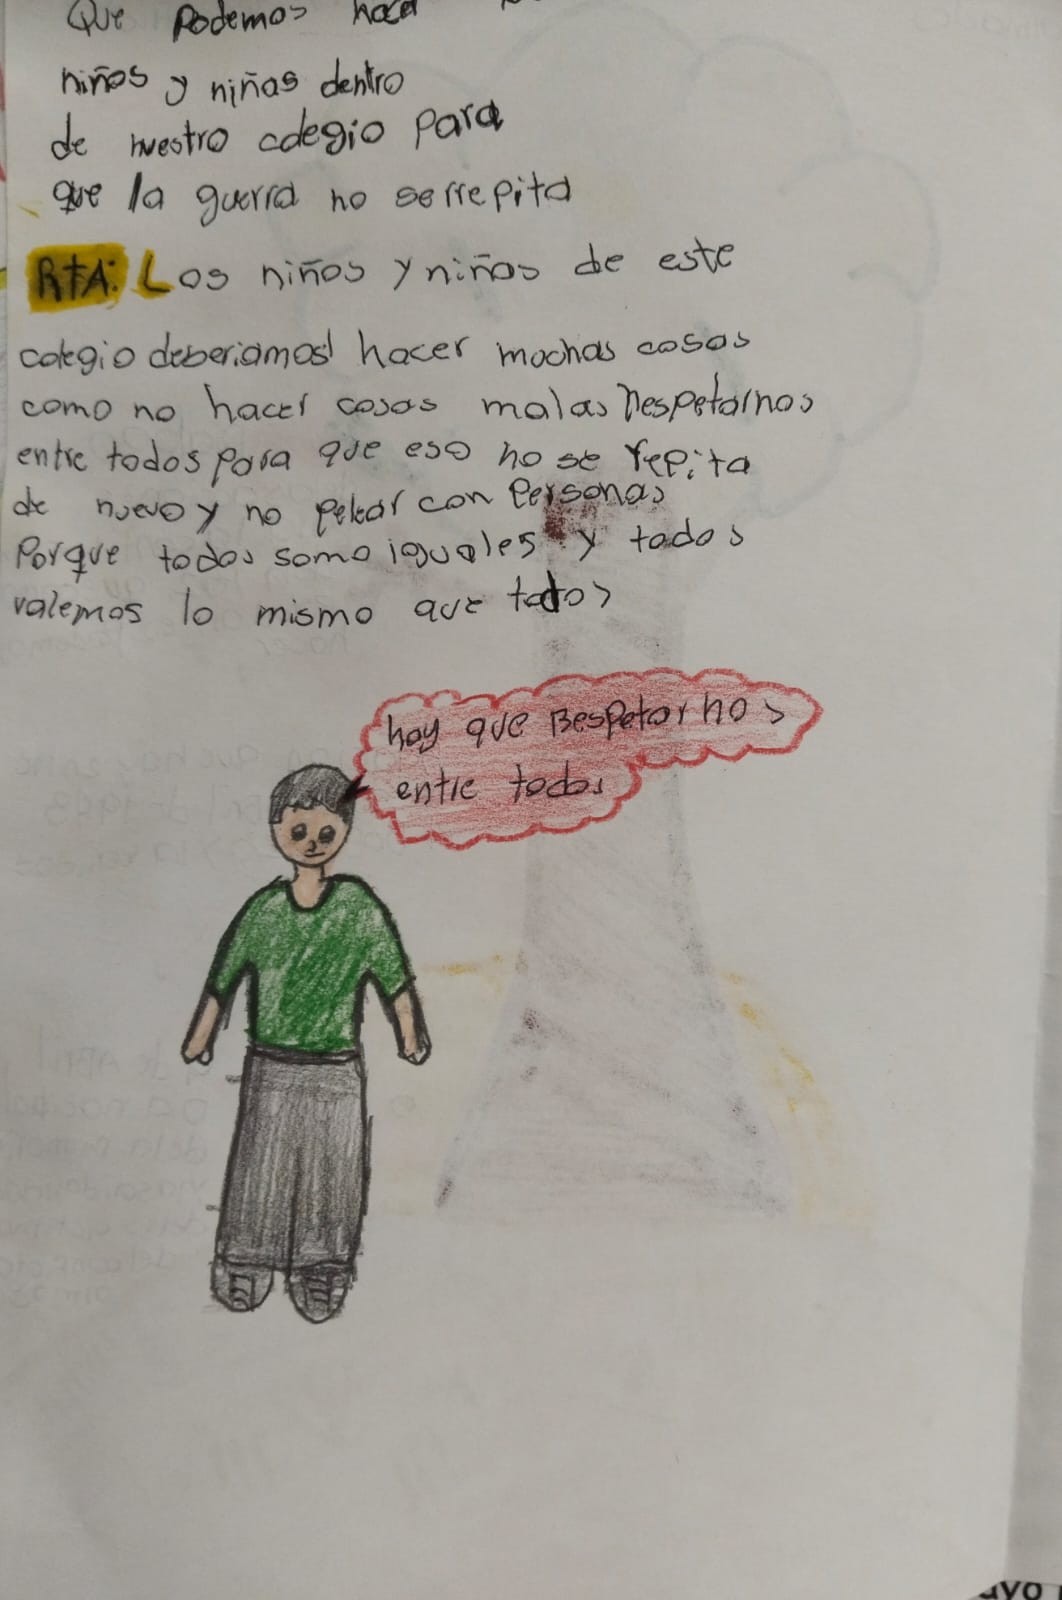 Que podemos hacer
niños y niñas dentro
de nuestro colegio para
que la guerra no serrepita
RTA: Los niños y niños de este
colegio deberiamos hacer muchas cosas
como no hacer cosas malas Respetarnos
entre todos para que eso no se repita
de nuevo y no pelear con Personas
Porque todos somo iguales y todos
valemos lo mismo que todos
hay que Respetarnos
entre todos